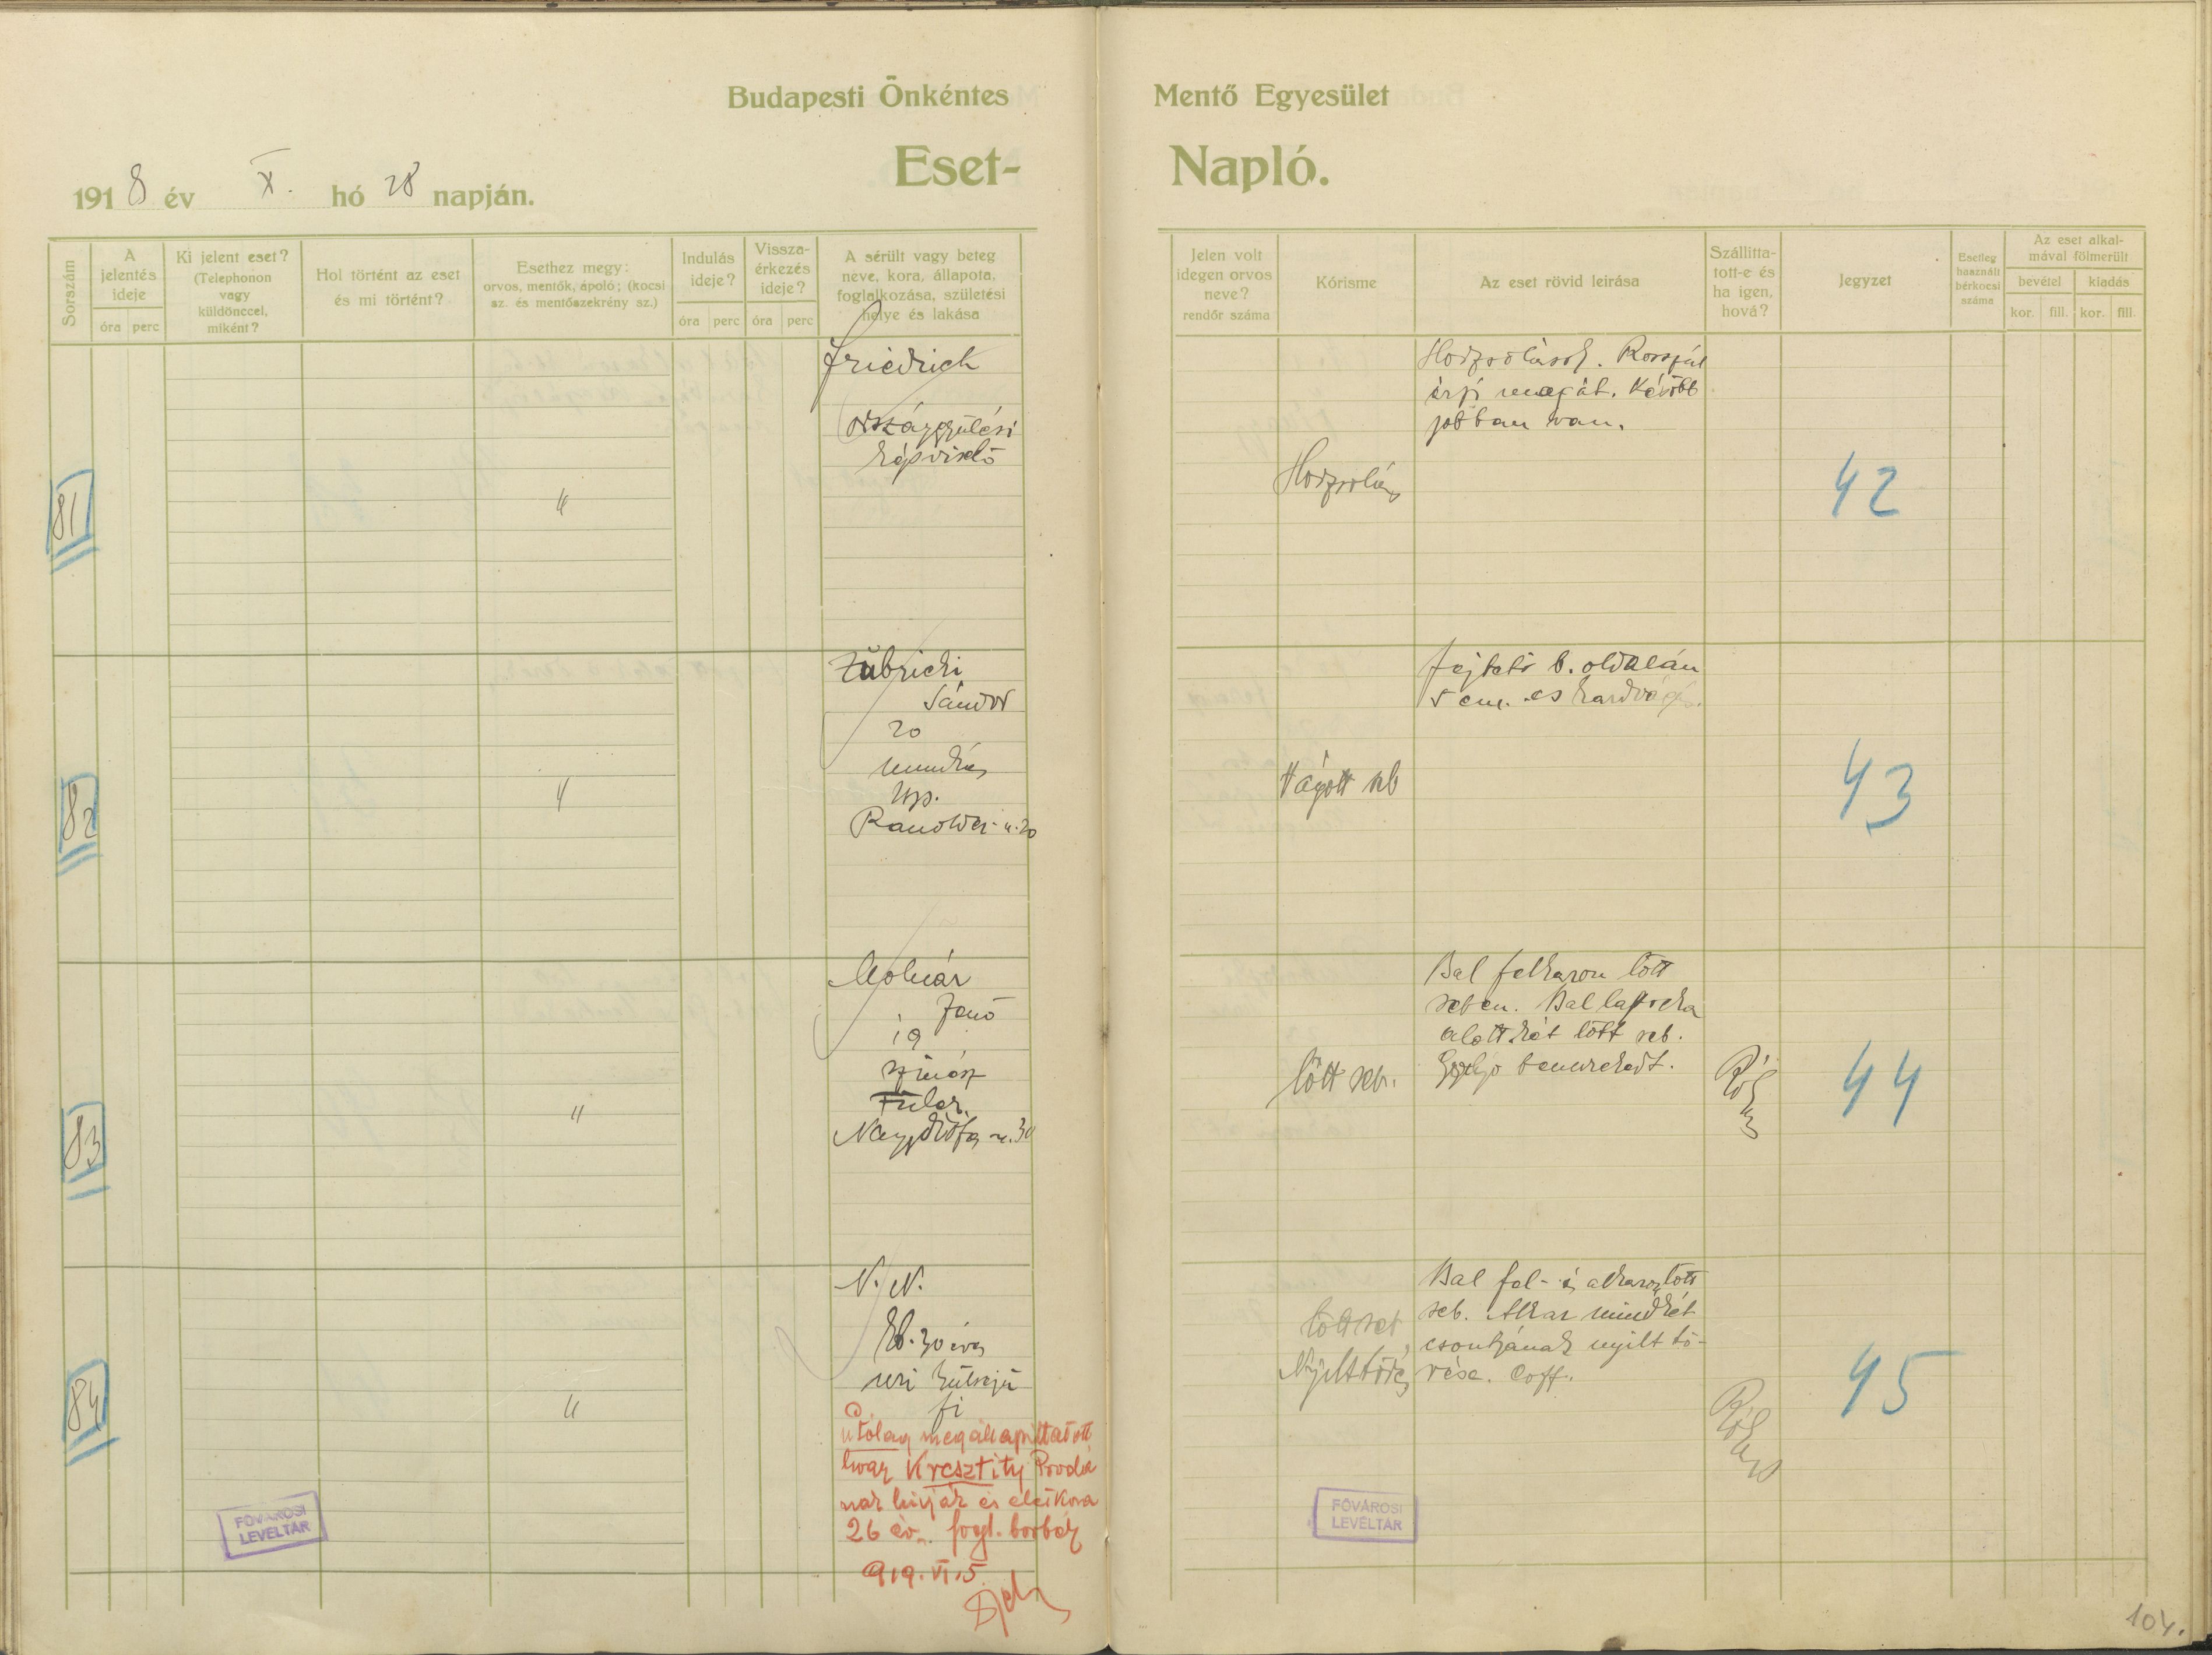 Budapesti Önkéntes Mentő Egyesület
Eset-Napló.
1918 év X. hó 28 napján.
Sorszám
A jelentés ideje
óra perc
Ki jelent eset?
(Telephonon
vagy
küldönccel,
miként?
Hol történt az eset
és mi történt?
Esethez megy:
orvos, mentők, ápoló; (kocsi
sz. és mentőszekrény sz.)
Indulás
ideje?
óra perc
Vissza-
érkezés
ideje?
óra perc
A sérült vagy beteg
neve, kora, állapota,
foglalkozása, születési
helye és lakása
Jelen volt
idegen orvos
neve?
rendőr száma
Kórisme
Az eset rövid leirása
Szállitta-
tott-e és
ha igen,
hová?
Jegyzet
Esetleg
használt
bérkocsi
száma
Az eset alkal-
mával fölmerült
bevétel kiadás
kor. fill. kor. fill.
81
"
Friedrich
országgyülési
képviselő
Horzsolás
Horzsolások. Rosszúl
érzi magát. Később
jobban van.
42
82
"
Sándor
20
munkás
Bp.
u. 20
Vágott seb
Fejtető b. oldalán
5 cm. es kardvágás.
43
83
"
Molnár
Jenő
19
szinész
Nagydiófa u. 30
Lőtt seb.
Bal felkaron lőtt
seben. Bal lapocka
alatt két lőtt seb.
Golyó bennrekedt.
Rókus
44
84
"
N. N.
kb. 30 éves
uri külsejü
fi
utólag megállapittatott
hogy Kresztity Proda
nak hivják és életkora
26 év. fogl. borbély
919. VI. 5.
Lőtt seb
Nyilt törés
Bal fel- és alkaron lőtt
seb. Alkar mindkét
csontjának nyilt tö-
rése. Coff.
Rókus
45
FŐVÁROSI
LEVÉLTÁR
FŐVÁROSI
LEVÉLTÁR
104.